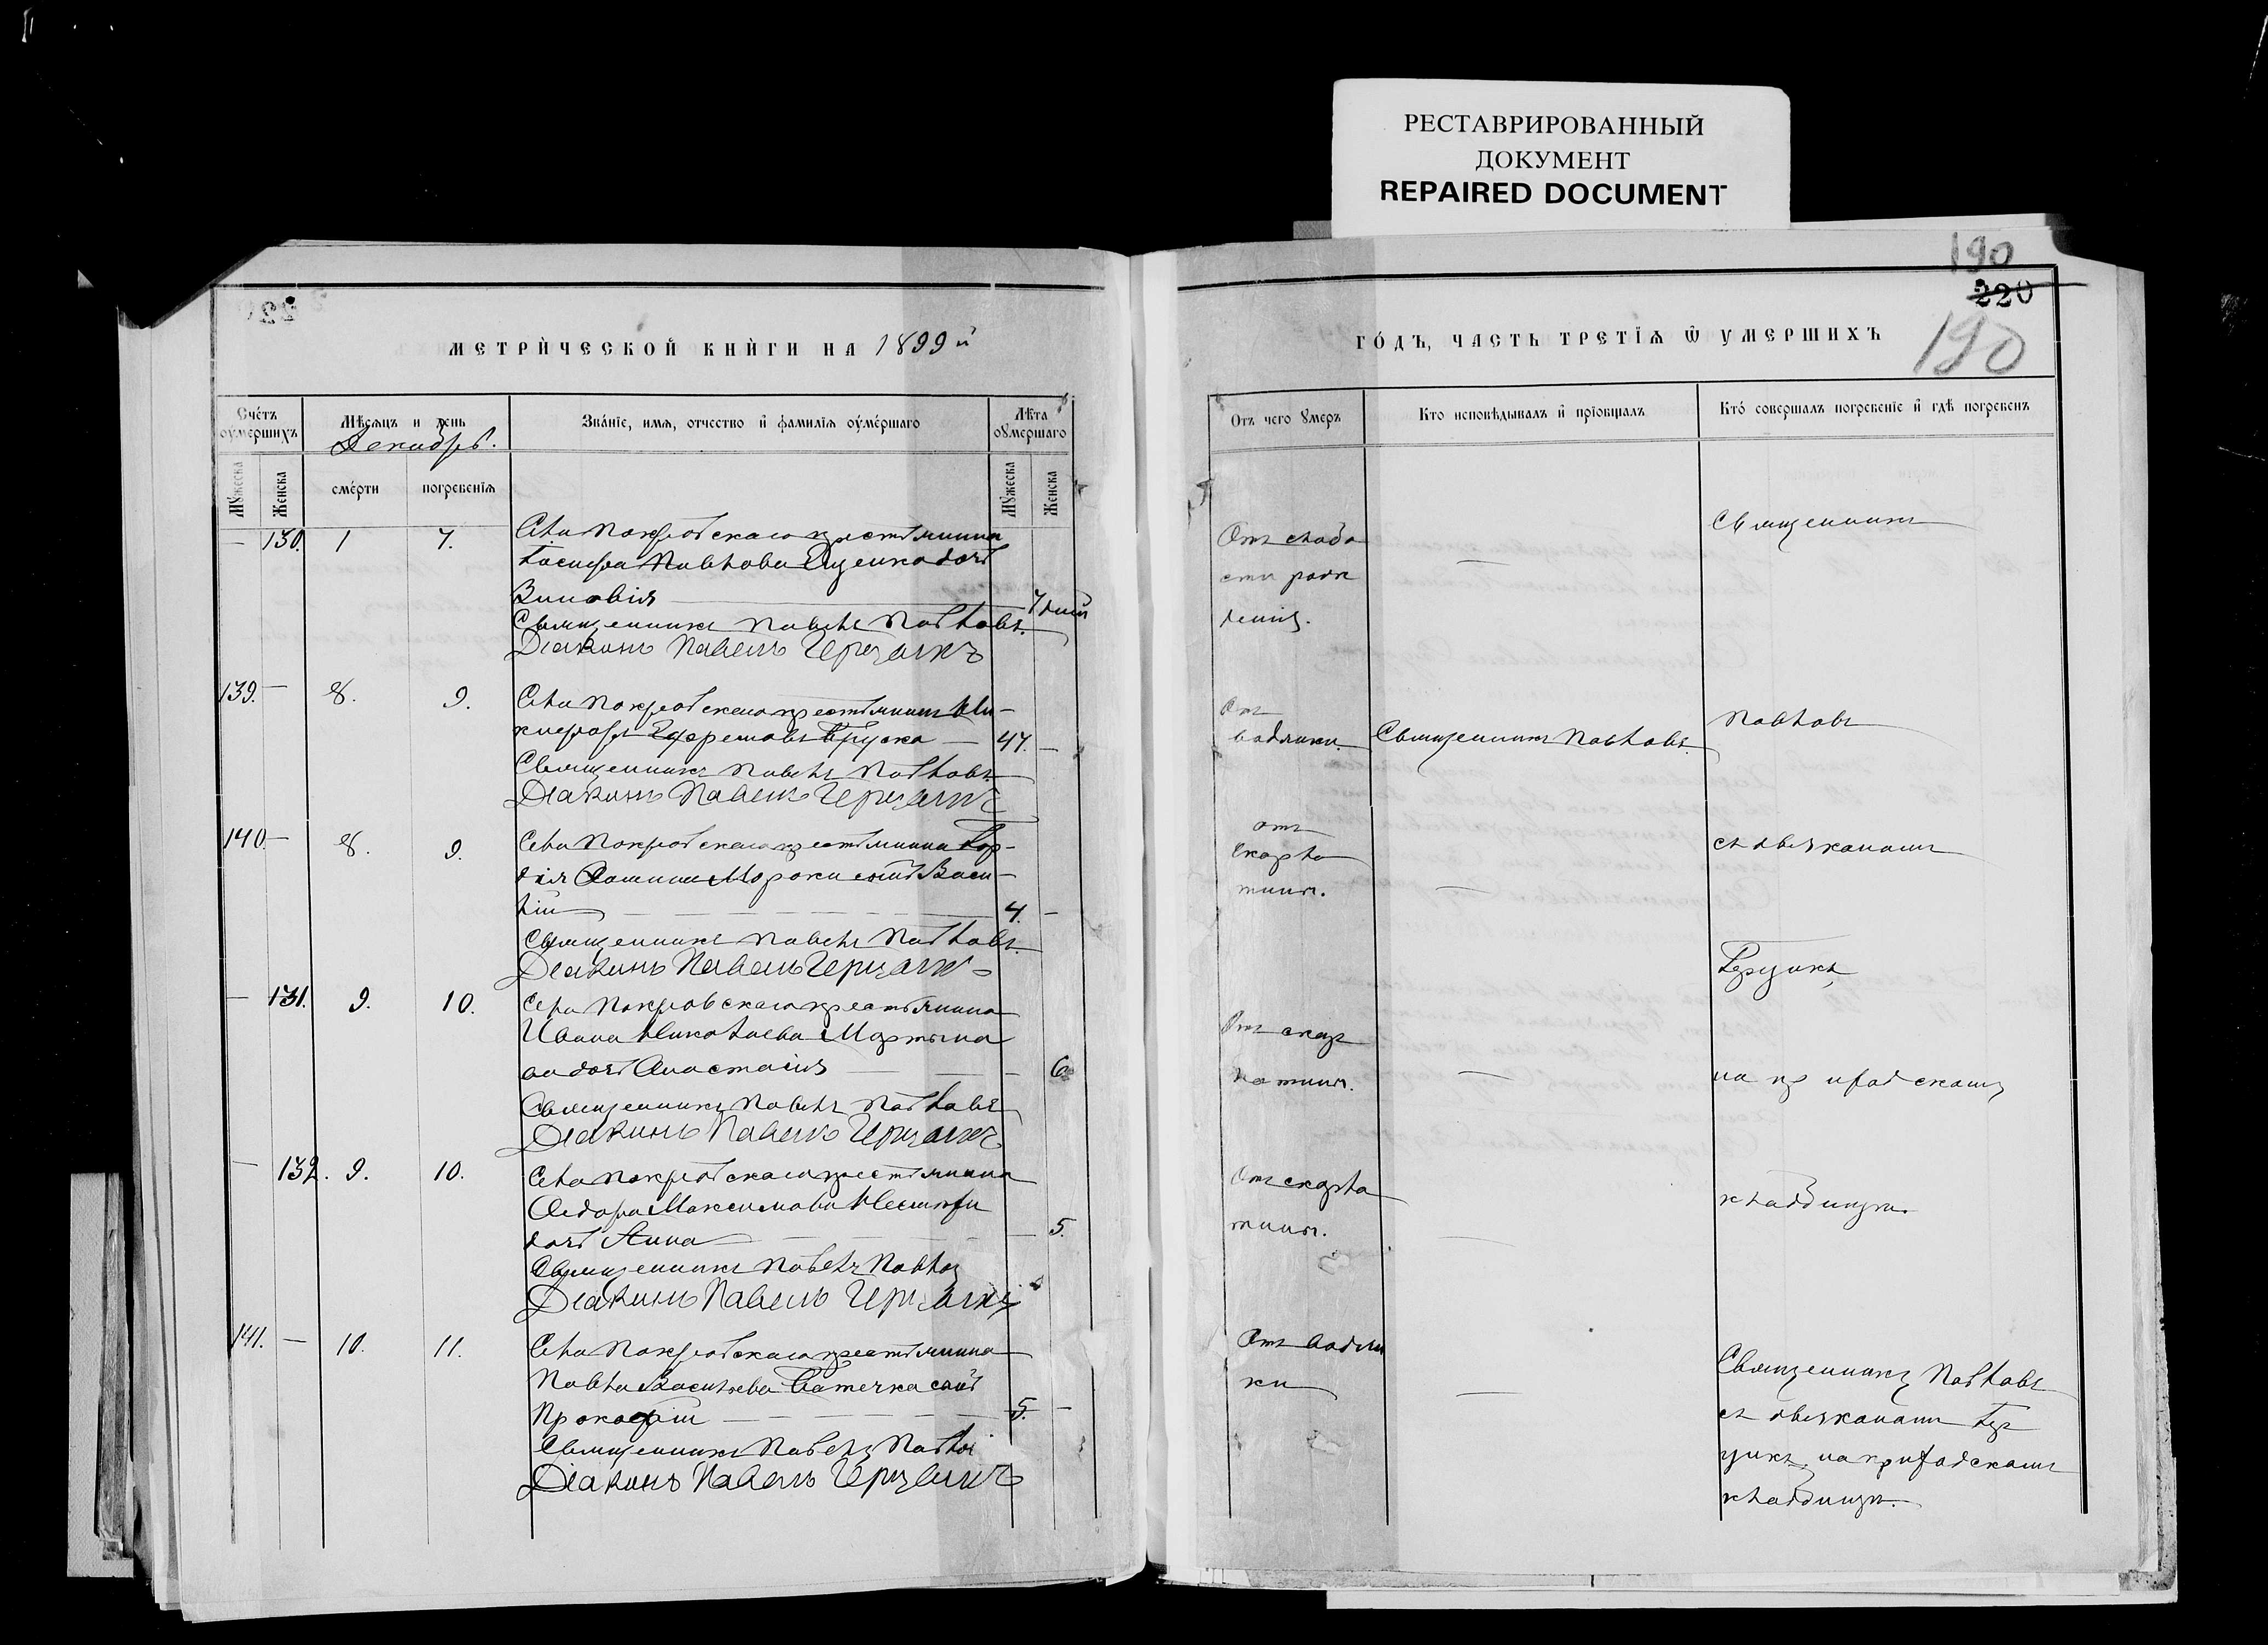 РЕСТАВРИРОВАННЫЙ
ДОКУМЕНТ
REPAIRED DOCUMENT
190
220
190
МЕТРИ́ЧЕСКОЙ КНИ́ГИ НА 1899 й
ГО́ДЪ, ЧАСТЬ ТРЕТІЯ Ѿ УМЕРШИХЪ
Сче́тъ оу́мершихъ
Мѣсяцъ и день
Декабрь.
Зва́ніе, имя, отчество и фамилія оуме́ршаго
Лѣта оумершаго
Отъ чего умеръ
Кто исповѣдывалъ и пріобщалъ
Кто́ совершалъ погребеніе и гдѣ погребенъ
Мужеска
Женска
сме́рти
погребенія
Мужеска
Женска
— 130. 1 7.
Села Покровскаго крестьянина
Іосифа Павлова дочь
Зиновія — 7 дней
Священникъ Павелъ Павловъ.
Діаконъ Павелъ Герцыкъ
Отъ слабо
сти рож
денія.
—
Священникъ
139. — 8. 9.
Села Покровскаго крестьянинъ Ни-
кифоръ Ефремовъ — 47. —
Священникъ Павелъ Павловъ
Діаконъ Павелъ Герцыкъ
Отъ
водянки.
Священникъ Павловъ.
Павловъ
140. — 8. 9.
Села Покровскаго крестьянина Гор-
дія Мороки сынъ Васи-
лій — 4. —
Священникъ Павелъ Павловъ.
Діаконъ Павелъ Герцыкъ
отъ
скарла
тины.
—
съ діякономъ
Герцыкъ,
— 131. 9. 10.
Села Покровскаго крестьянина
Ивана Николаева Мартына
дочь Анастасія — 6
Священникъ Павелъ Павловъ
Діаконъ Павелъ Герцыкъ
Отъ скар
латины.
—
на приходскомъ
— 132. 9. 10.
Села Покровскаго крестьянина
Ѳедора Максимова
дочь Анна — 5.
Священникъ Павелъ Павлов
Діаконъ Павелъ Герцыкъ
Отъ скарла
тины.
—
кладбищѣ.
141. — 10. 11.
Села Покровскаго крестьянина
Павла Васильева сынъ
Прокофій — 5. —
Священникъ Павелъ Павлов
Діаконъ Павелъ Герцыкъ
Отъ водян
ки
—
Священникъ Павловъ
съ діякономъ Гер
цыкъ, на приходскомъ
кладбищѣ.